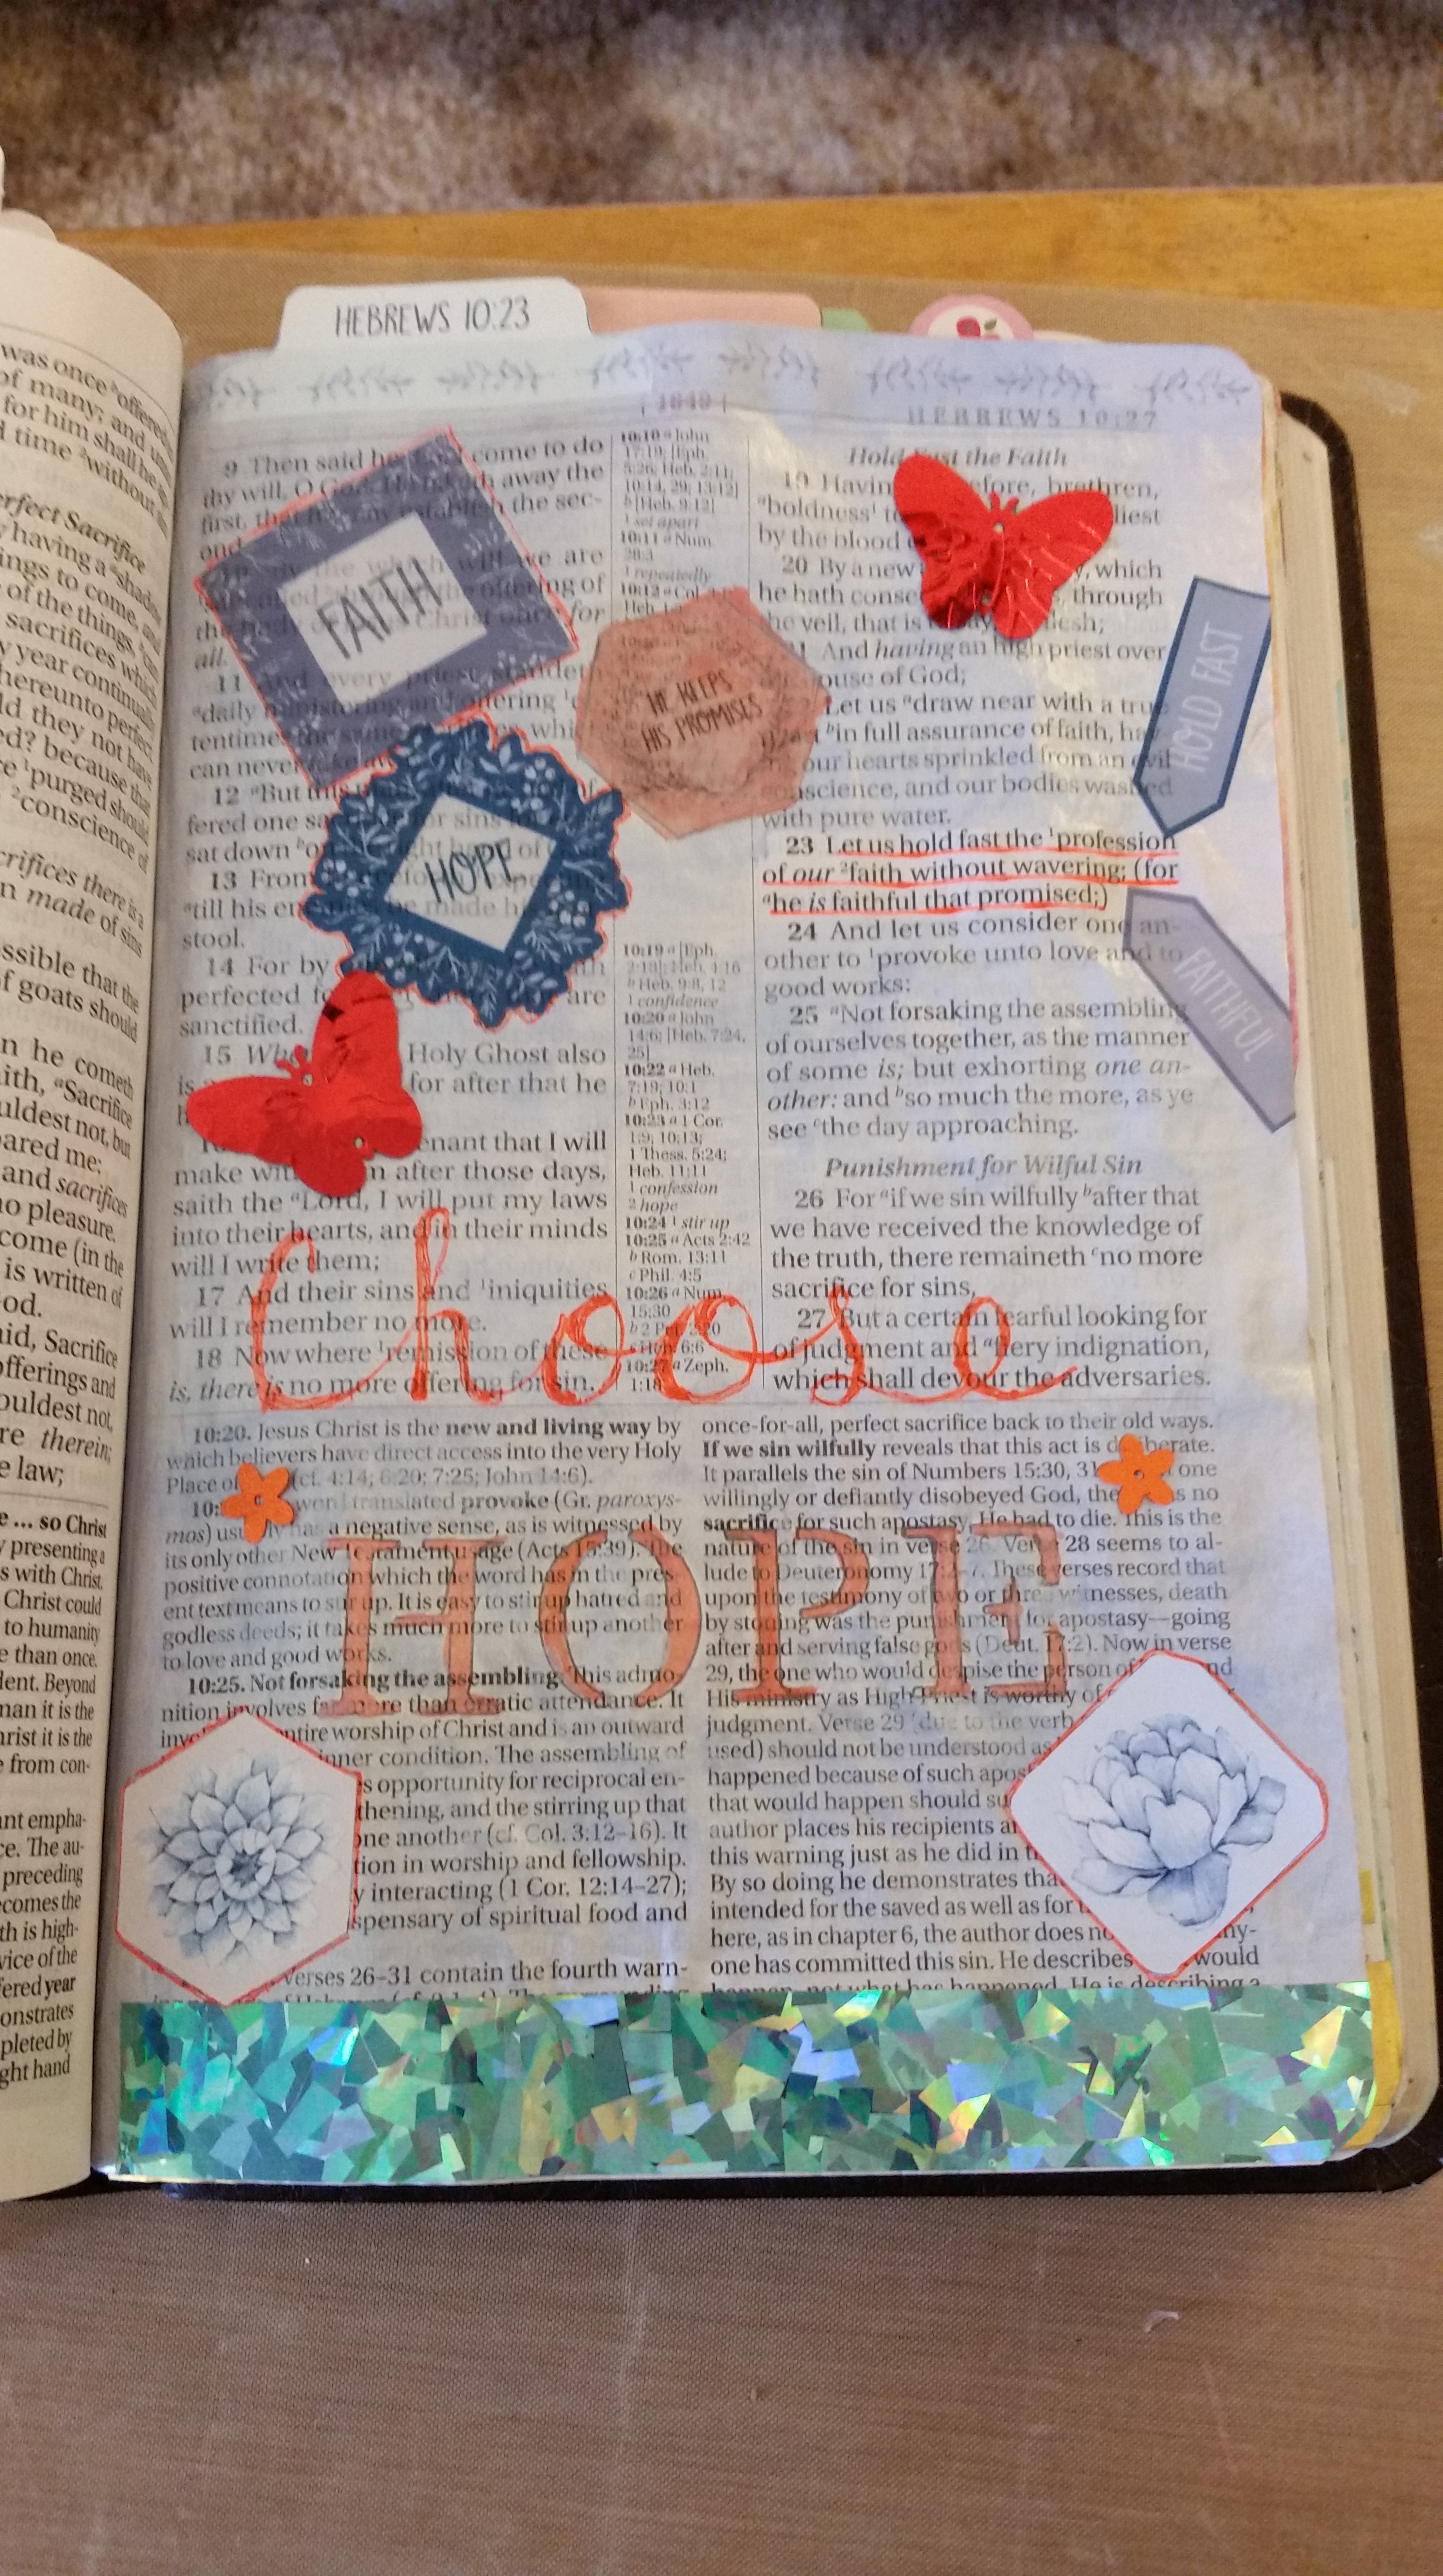 HEBREWS 10:23
was once ᵃoffered
of many; and unto
for him shall he
time ᵃwithout
Perfect Sacrifice
having a ᵃshadow
ings to come, and
of the things, ᵇcan
sacrifices which
y year continually
hereunto perfect.
ld they not have
ed? because that
ce ¹purged should
²conscience of
crifices there is a
n made of sins
ssible that the
f goats should
n he cometh
ith, ᵃSacrifice
uldest not, but
pared me:
and sacrifices
no pleasure.
come (in the
is written of
od.
aid, Sacrifice
offerings and
ouldest not,
re therein;
e law;
e … so Christ
y presenting a
s with Christ.
Christ could
to humanity
e than once.
dent. Beyond
man it is the
hrist it is the
e from con-
ant empha-
ce. The au-
preceding
ecomes the
th is high-
vice of the
fered year
onstrates
pleted by
ght hand
1849
HEBREWS 10:27
9 Then said he come to do
thy will, O away the
first, that establish the sec-
ond.
are
offering of
for
all.
11 And every priest standeth
ᵃdaily ministering and offering
tentimes
can never
12 ᵃBut
fered one for sins for
sat down ᵇo right hand of
13 From
ᵃtill his made
stool.
14 For by
perfected for are
sanctified.
15 Holy Ghost also
for after that he
covenant that I will
make with after those days,
saith the ᵃLord, I will put my laws
into their hearts, and in their minds
will I write them;
17 And their sins and ¹iniquities
will I remember no more.
18 Now where ¹remission of these
is, there is no more offering for sin.
FAITH
HOPE
HE KEEPS
HIS PROMISES
10:10 ᵃ John
17:19; [Eph.
5:26; Heb. 2:11;
10:14, 29; 13:12]
ᵇ [Heb. 9:12]
¹ set apart
10:11 ᵃ Num.
28:3
¹ repeatedly
10:12 ᵃ Col.
Heb.
10:19 ᵃ [Eph.
2:18]; Heb. 4:16
ᵇ Heb. 9:8, 12
¹ confidence
10:20 ᵃ John
14:6; [Heb. 7:24,
25]
10:22 ᵃ Heb.
7:19; 10:1
ᵇ Eph. 3:12
10:23 ᵃ 1 Cor.
1:9; 10:13;
1 Thess. 5:24;
Heb. 11:11
¹ confession
² hope
10:24 ¹ stir up
10:25 ᵃ Acts 2:42
ᵇ Rom. 13:11
ᶜ Phil. 4:5
10:26 ᵃ Num.
15:30
ᵇ 2 Pet. 2:20
ᶜ Heb. 6:6
10:27 ᵃ Zeph.
1:18
Hold Fast the Faith
19 Having therefore, brethren,
ᵃboldness¹ to holiest
by the blood
20 By a new which
he hath consecrated through
the veil, that is flesh;
And having an high priest over
house of God;
Let us ᵃdraw near with a true
ᵇin full assurance of faith, having
our hearts sprinkled from an evil
conscience, and our bodies washed
with pure water.
23 Let us hold fast the ¹profession
of our ²faith without wavering; (for
ᵃhe is faithful that promised;)
24 And let us consider one an-
other to ¹provoke unto love and to
good works:
25 ᵃNot forsaking the assembling
of ourselves together, as the manner
of some is; but exhorting one an-
other: and ᵇso much the more, as ye
see ᶜthe day approaching.
Punishment for Wilful Sin
26 For ᵃif we sin wilfully ᵇafter that
we have received the knowledge of
the truth, there remaineth ᶜno more
sacrifice for sins,
27 But a certain fearful looking for
of judgment and ᵃfiery indignation,
which shall devour the adversaries.
HOLD FAST
FAITHFUL
choose
HOPE
10:20. Jesus Christ is the new and living way by
which believers have direct access into the very Holy
Place of (cf. 4:14; 6:20; 7:25; John 14:6).
word translated provoke (Gr. paroxys-
mos) usually has a negative sense, as is witnessed by
its only other New Testament usage (Acts 15:39). The
positive connotation which the word has in the pres-
ent text means to stir up. It is easy to stir up hatred and
godless deeds; it takes much more to stir up another
to love and good works.
10:25. Not forsaking the assembling. This admo-
nition involves far more than erratic attendance. It
involves entire worship of Christ and is an outward
inner condition. The assembling of
opportunity for reciprocal en-
thening, and the stirring up that
one another (cf. Col. 3:12–16). It
tion in worship and fellowship.
y interacting (1 Cor. 12:14–27);
spensary of spiritual food and
Verses 26–31 contain the fourth warn-
once-for-all, perfect sacrifice back to their old ways.
If we sin wilfully reveals that this act is deliberate.
It parallels the sin of Numbers 15:30, 31 one
willingly or defiantly disobeyed God, there was no
sacrifice for such apostasy. He had to die. This is the
nature of the sin in verse 26. Verse 28 seems to al-
lude to Deuteronomy 17:2–7. These verses record that
upon the testimony of two or three witnesses, death
by stoning was the punishment for apostasy—going
after and serving false gods (Deut. 17:2). Now in verse
29, the one who would despise the person of and
His ministry as High Priest is worthy of
judgment. Verse 29 (due to the verb
used) should not be understood as
happened because of such apos
that would happen should su
author places his recipients
this warning just as he did in
By so doing he demonstrates that
intended for the saved as well as for
here, as in chapter 6, the author does not any-
one has committed this sin. He describes would
happen, not what has happened. He is describing a